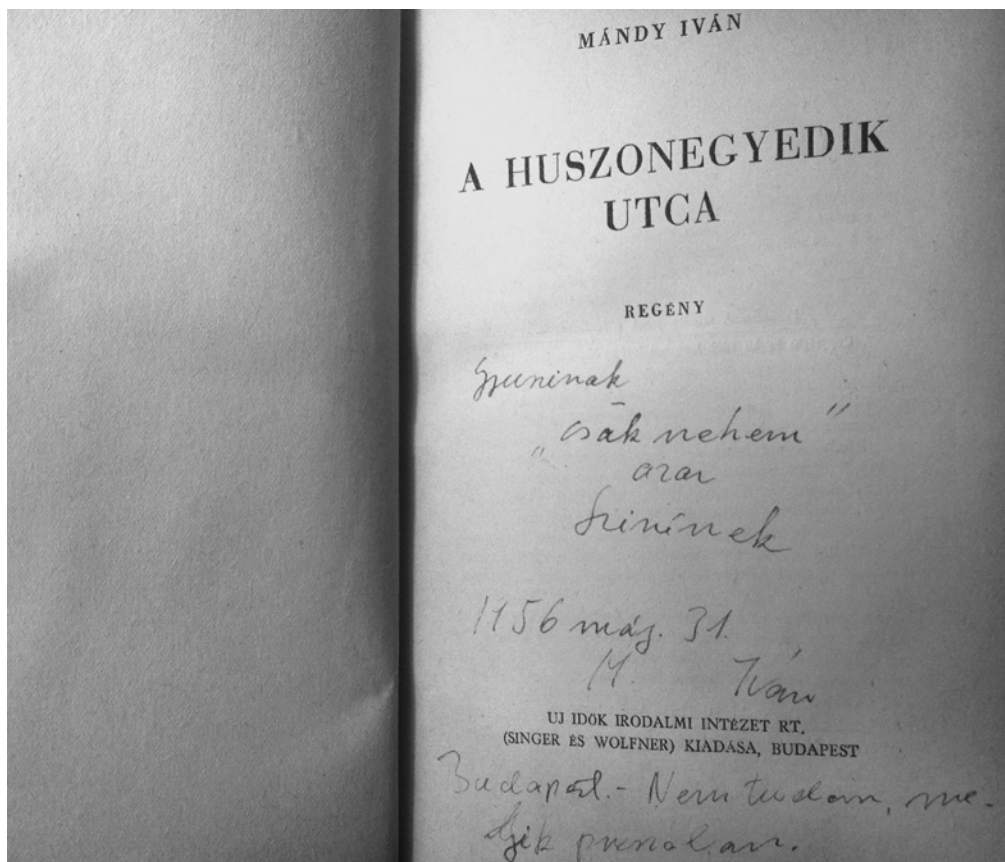 MÁNDY IVÁN
A HUSZONEGYEDIK
UTCA
REGÉNY
„csak nekem"
azaz
1956 máj. 31.
M. Iván
UJ IDŐK IRODALMI INTÉZET RT.
(SINGER ÉS WOLFNER) KIADÁSA, BUDAPEST
Budapest.- Nem tudom, me-